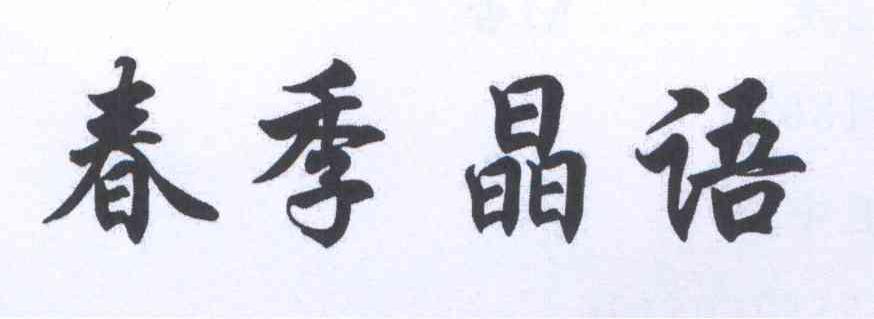 春季晶语